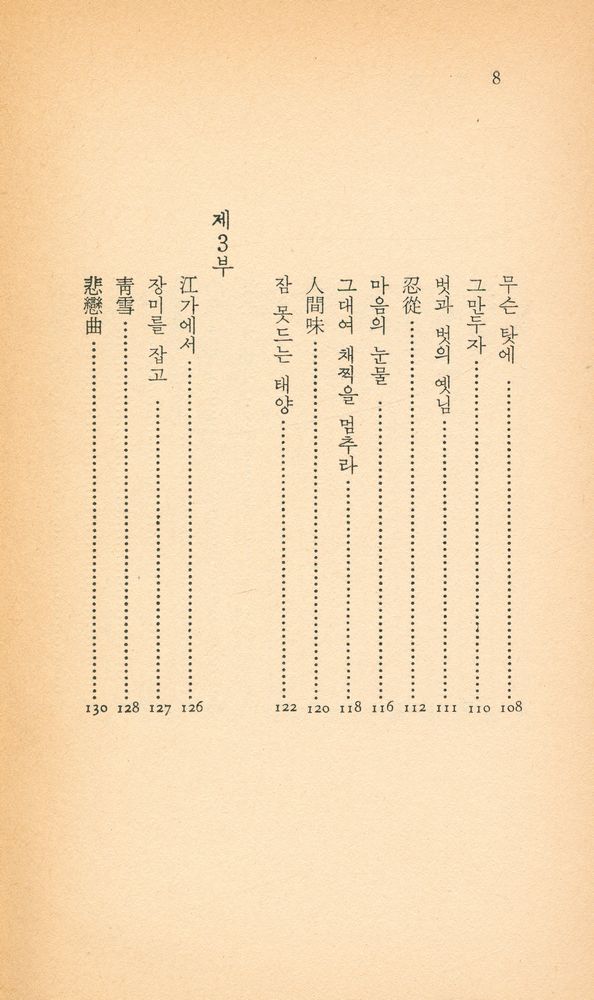 8
무슨 탓에 108
그만두자 110
벗과 벗의 옛님 111
忍從 112
마음의 눈물 116
그대여 채찍을 멈추라 118
人間味 120
잠 못드는 태양 122
제3부
江가에서 126
장미를 잡고 127
靑雪 128
悲戀曲 130